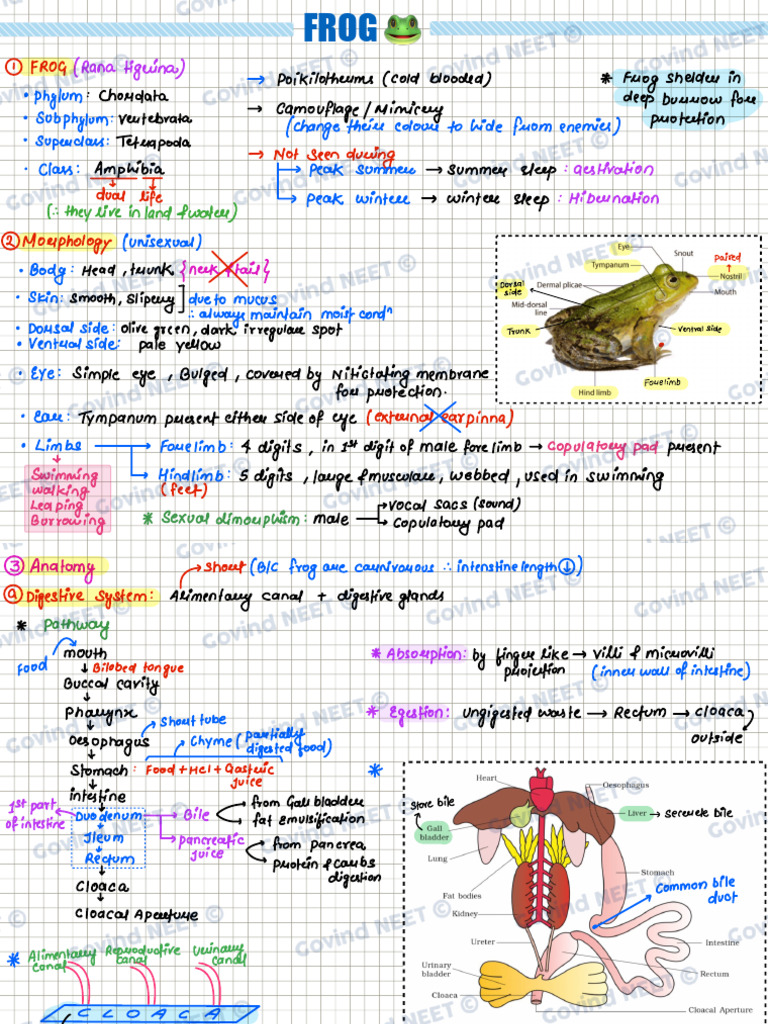 FROG
① FROG (Rana tigrina)
• Phylum: Chordata
• Subphylum: vertebrata
• Superclass: Tetrapoda
• Class: Amphibia
dual life
(∴ they live in land & water)
→ Poikilotherms (cold blooded)
→ Camouflage / Mimicry
(change their colour to hide from enemies)
→ Not seen during
Peak summer → summer sleep : aestivation
Peak winter → winter sleep : Hibernation
* Frog shelder in
deep burrow for
protection
② Morphology (unisexual)
• Body: Head, trunk, {neck & tail}
• Skin: Smooth, Slipery] due to mucus
∴ always maintain moist condn
• Dorsal side: olive green, dark irregular spot
• Ventral side: pale yellow
• Eye: Simple eye, Bulged, covered by Nitictating membrane
for protection.
• Ear: Tympanum present either side of eye (external ear pinna)
• Limbs → Forelimb: 4 digits, in 1st digit of male forelimb → copulatory pad present
→ Hindlimb: 5 digits, large & muscular, webbed, used in swimming
(feet)
Swimming
walking
Leaping
Burrowing
* Sexual dimorphism: male → vocal sacs (sound)
→ copulatory pad
Eye
Snout
Tympanum
paired
Nostril
Dorsal
side
Dermal plicae
Mouth
Mid-dorsal
line
Trunk
Ventral side
Forelimb
Hind limb
③ Anatomy
→ Short (B/C frog are carnivorous ∴ intenstine length ↓)
ⓐ Digestive System: Alimentary canal + digestive glands
* Pathway
mouth
Food
↓ Bilobed tongue
Buccal cavity
↓
Pharynx
↓
Oesophagus → Short tube
↓
→ Chyme (partially
digested food)
Stomach: Food + HCl + Gastric
juice
↓
intestine
1st part
of intestine
Duodenum → Bile
from Gall bladder
fat emulsification
Ileum
→ pancreatic
juice
from pancrea
protein & carbs
digestion
Rectum
↓
Cloaca
↓
Cloacal Aperture
* Absorption: by finger like → villi & microvilli
projection (inner wall of intestine)
* Egestion: ungigested waste → Rectum → cloaca
outside
*
Heart
Oesophagus
store bile
Liver → secrete bile
Gall
bladder
Lung
Stomach
Common bile
duct
Fat bodies
Kidney
Ureter
Intestine
Urinary
bladder
Rectum
Cloaca
Cloacal Aperture
* Alimentary
canal
Reproductive
canal
Urinary
canal
C L O A C A
Govind NEET ©